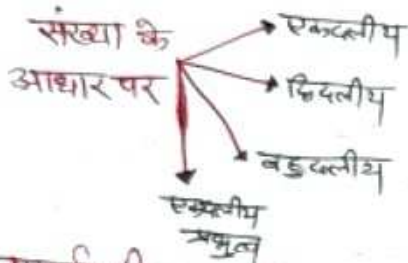 संख्या के
आधार पर
एकदलीय
द्विदलीय
बहुदलीय
एकदलीय
प्रभुत्व